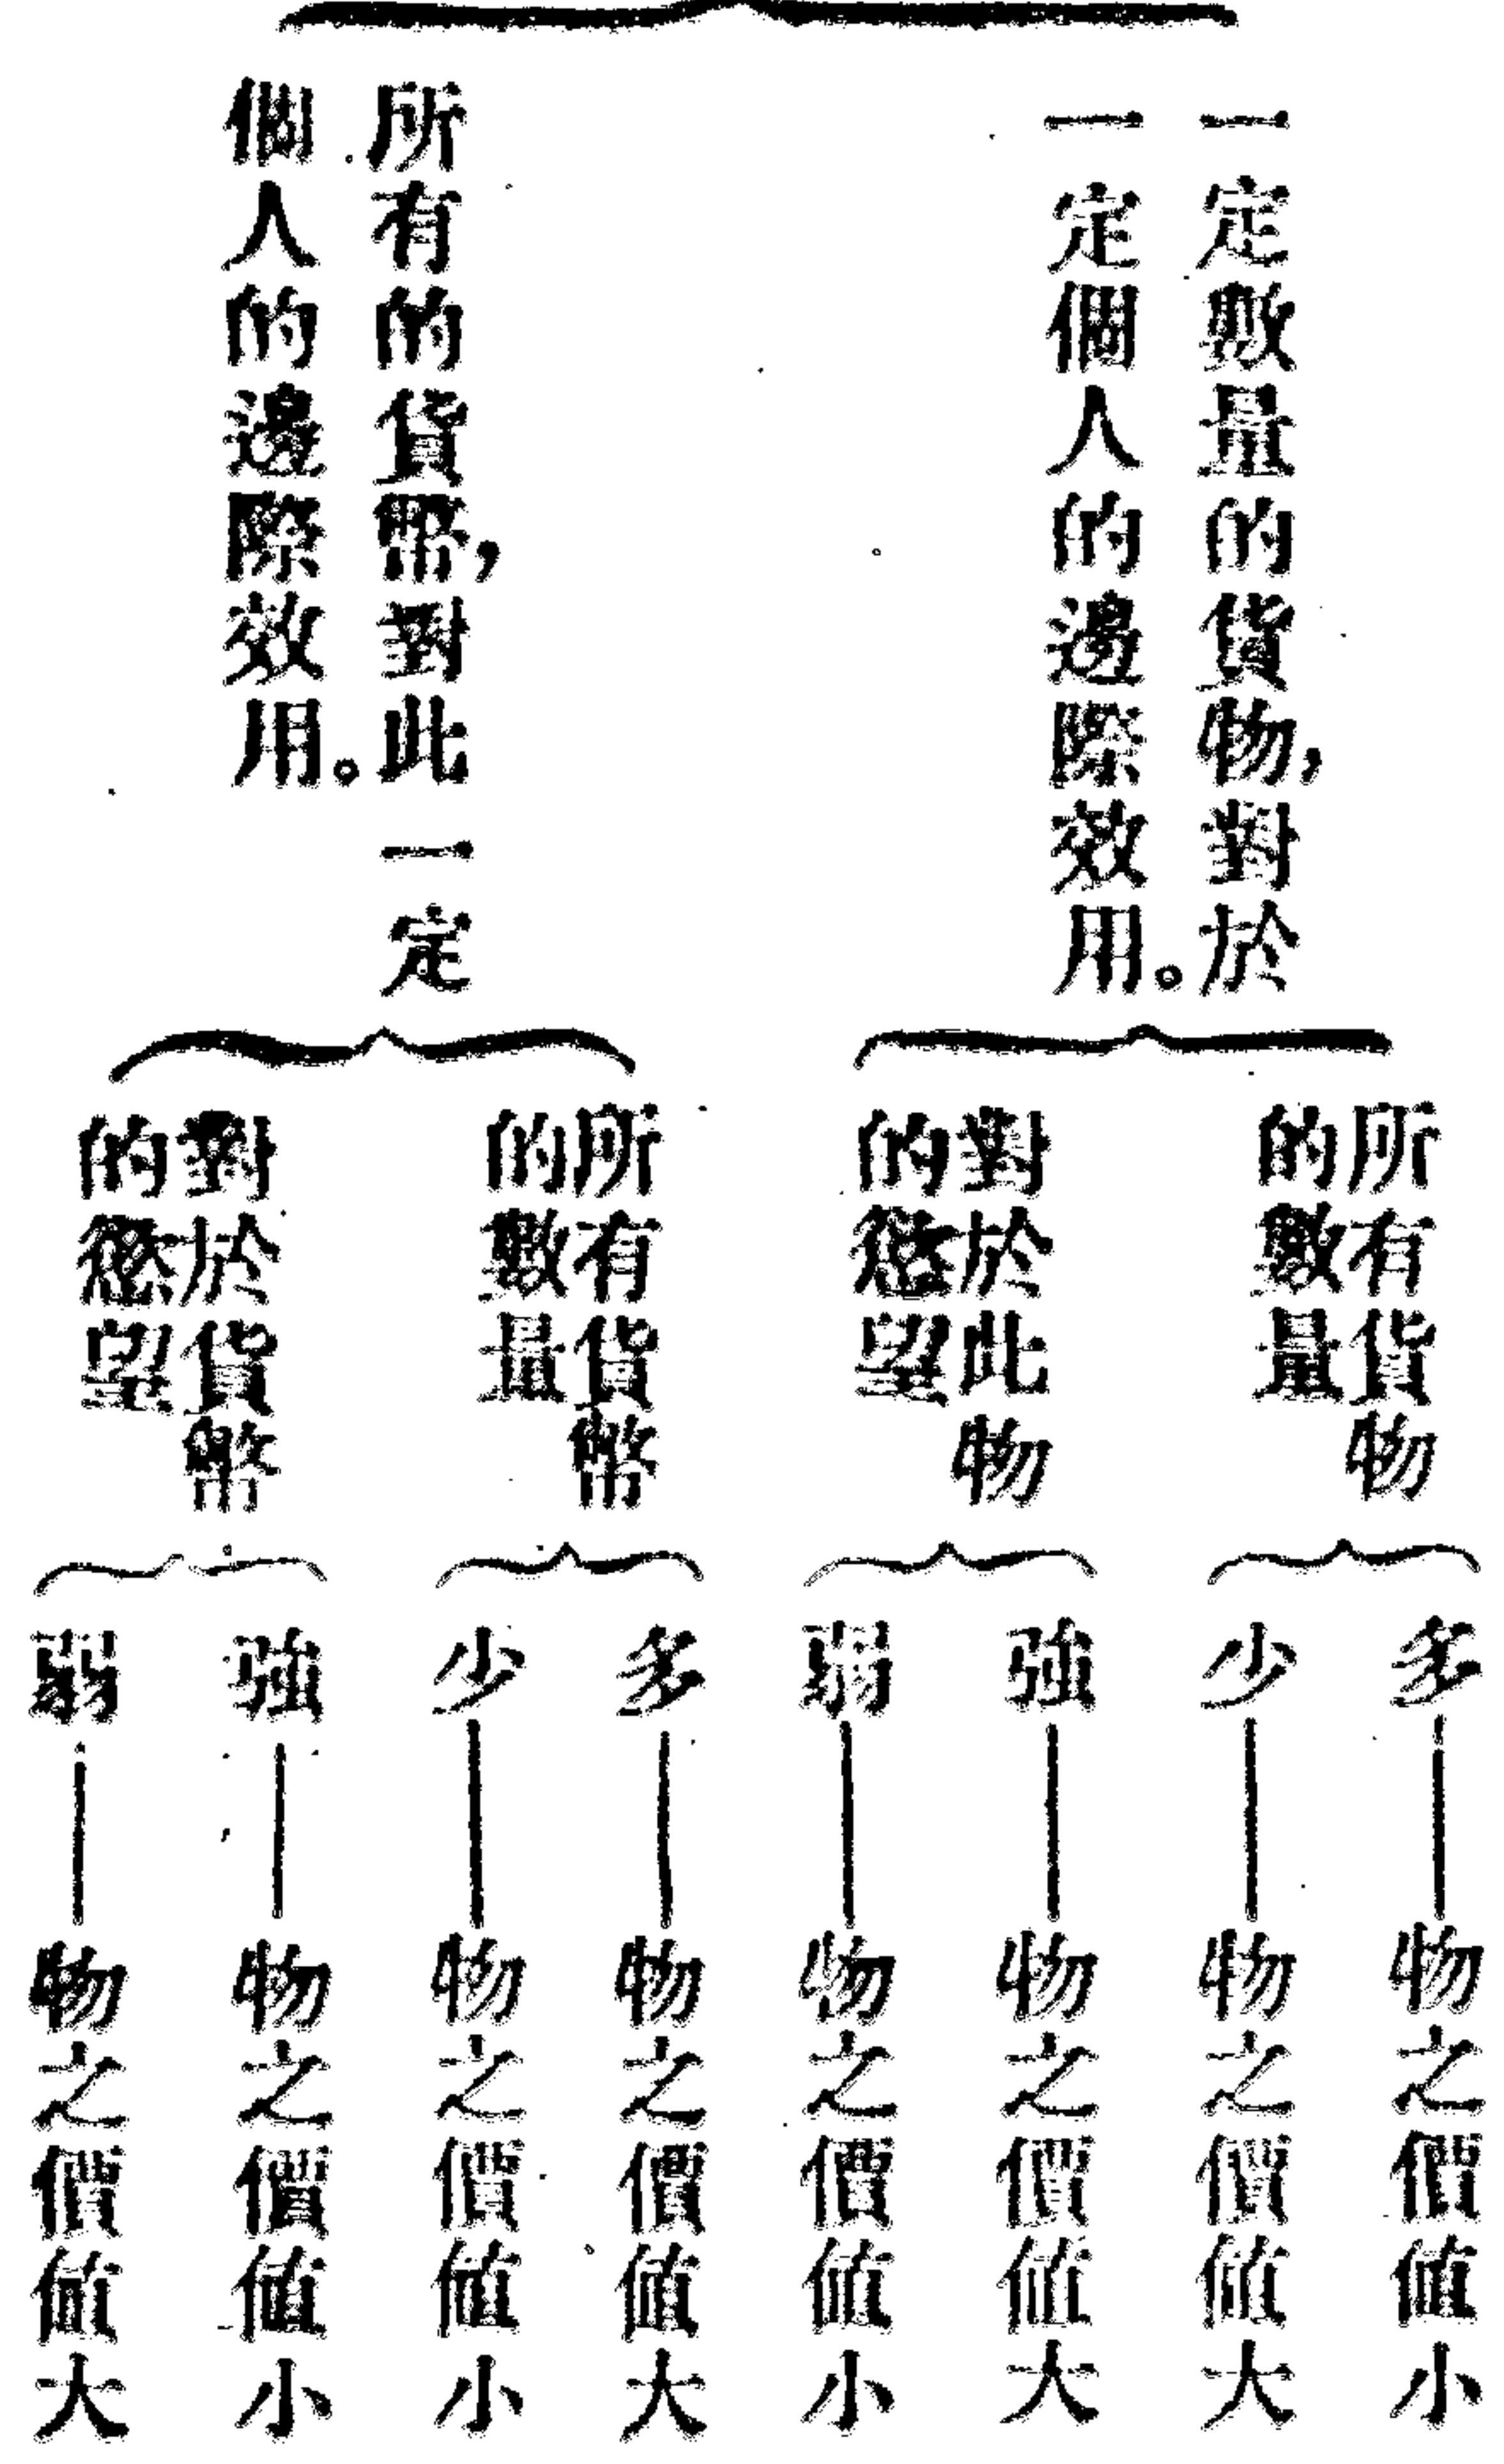 一定數量的貨物，對於
一定個人的邊際效用。
所有貨物
的數量
多——物之價値小
少——物之價値大
對於此物
的慾望
強——物之價値大
弱——物之價値小
所有的貨幣，對此一定
個人的邊際效用。
所有貨幣
的數量
多——物之價値大
少——物之價値小
對於貨幣
的慾望
強——物之價値小
弱——物之價値大